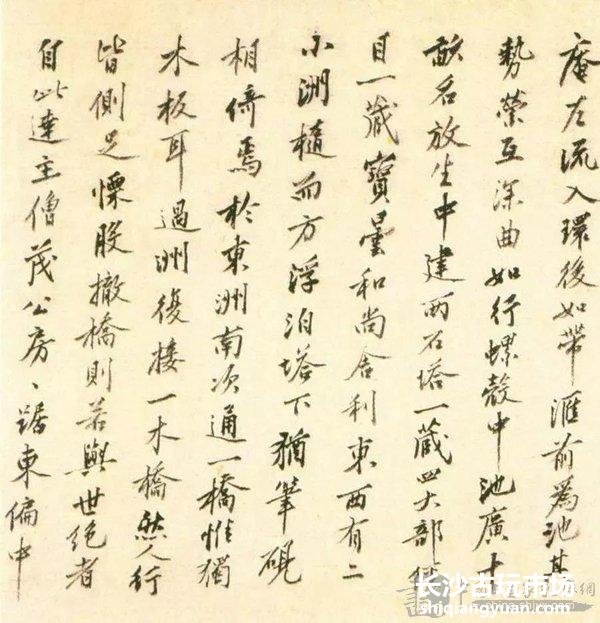 庵左流入環後如帶滙前為池其
勢縈互深曲如行螺殻中池廣十
畝名放生中建兩石塔一藏四大部
目一藏寶曇和尚舍利東西有二
小洲橢而方浮泊塔下猶筆硯
相倚焉於東洲南次通一橋惟獨
木板耳過洲復接一木橋然人行
皆側足慄股撤橋則若與世絕者
自此達主僧茂公房、踞東偏中
长沙古玩市场
shiqiangyuan.com